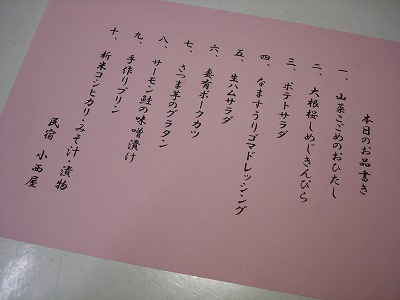 本日のお品書き
一、山菜こごめのおひたし
二、大根桜しめじきんぴら
三、ポテトサラダ
四、なますうりゴマドレッシング
五、生ハムサラダ
六、妻有ポークカツ
七、さつま芋のグラタン
八、サーモン鮭の味噌漬け
九、手作りプリン
十、新米コシヒカリ・みそ汁・漬物
民宿 小西屋